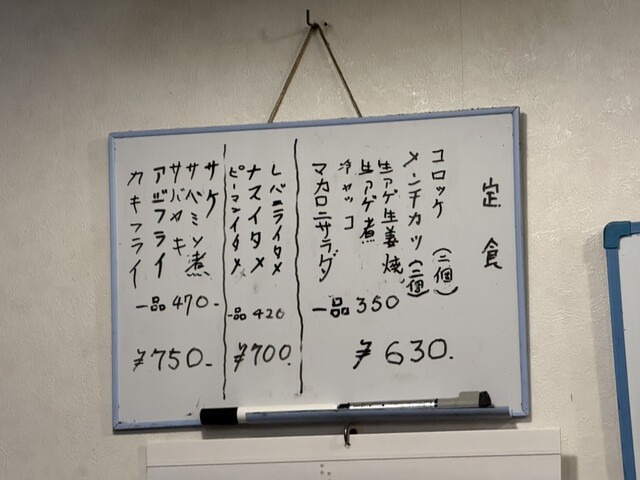 定食
コロッケ(二個)
メンチカツ(二個)
生アゲ生姜焼
生アゲ煮
冷ヤッコ
マカロニサラダ
一品350
¥630.
レバニライタメ
ナスイタメ
ピーマンイタメ
一品420
¥700.
サケ
サバミソ煮
サバヤキ
アジフライ
カキフライ
一品470-
¥750-